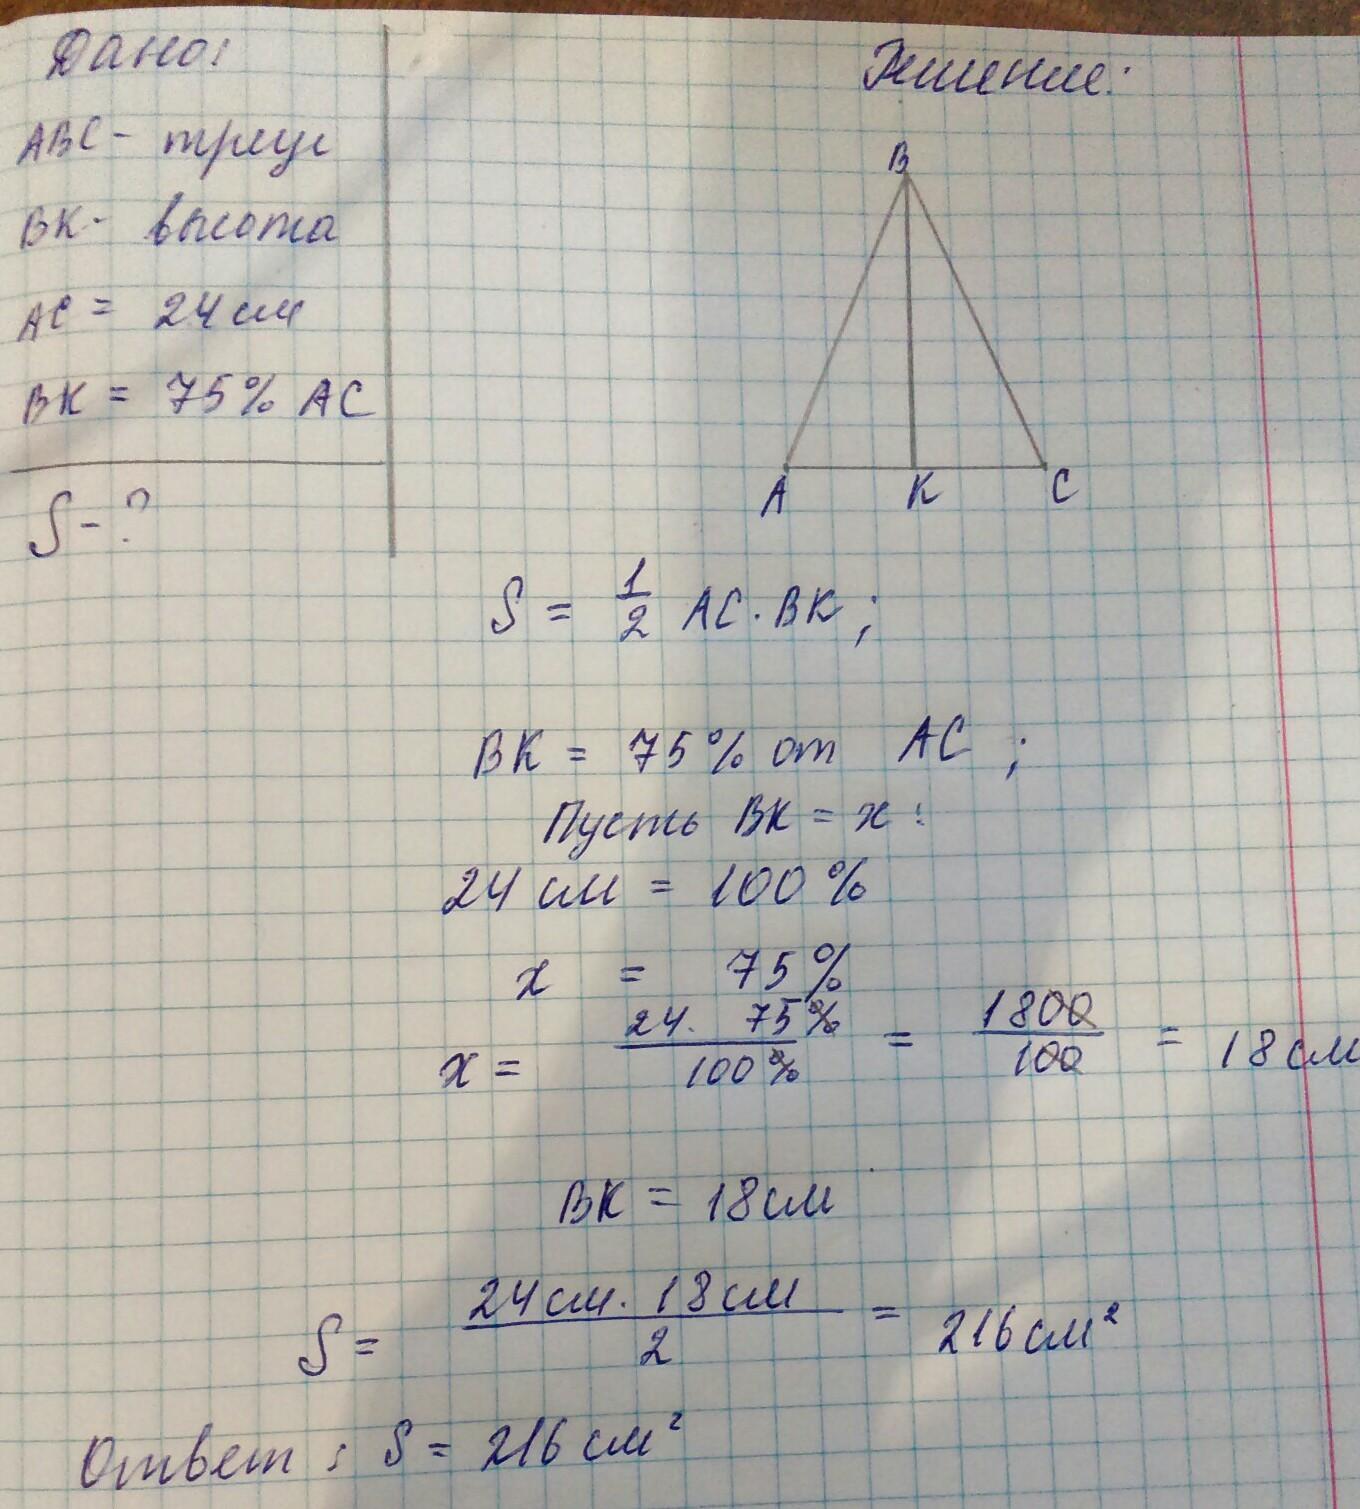 Дано:
ABC - треуг
BK - высота
AC = 24 см
BK = 75% AC
S - ?
Решение:
B
A K C
S = 1/2 AC · BK ;
BK = 75% от AC ;
Пусть BK = x :
24 см = 100 %
x = 75 %
x = 24 · 75% / 100% = 1800 / 100 = 18 см
BK = 18 см
S = 24 см · 18 см / 2 = 216 см²
Ответ : S = 216 см²